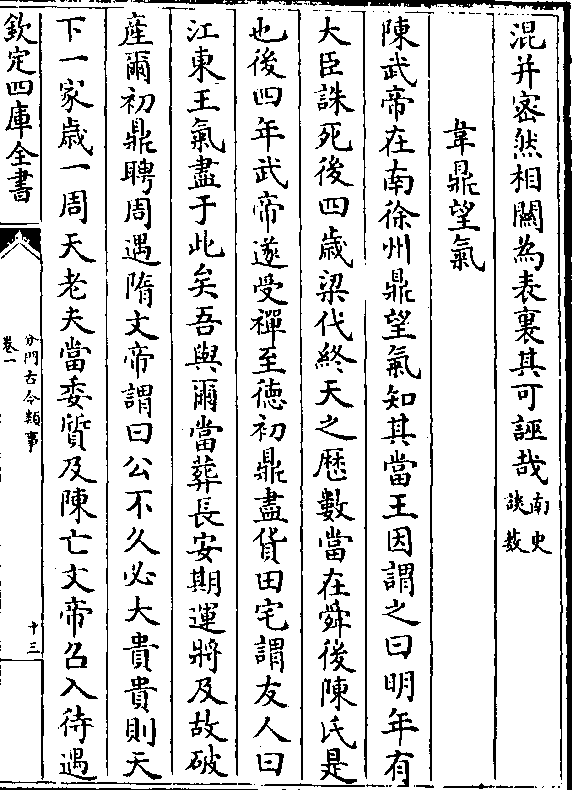 混并宻然相闗為表裏其可誣哉南史談薮
韋鼎望氣
陳武帝在南徐州鼎望氣知其當王因謂之曰明年有
大臣誅死後四歳梁代終天之歴數當在舜後陳氏是
也後四年武帝遂受禪至徳初鼎盡貨田宅謂友人曰
江東王氣盡于此矣吾與爾當葬長安期運將及故破
産爾初鼎聘周遇隋文帝謂曰公不久必大貴貴則天
下一家歳一周天老夫當委質及陳亡文帝召入待遇
欽定四庫全書
分門古今類事
卷一
十三